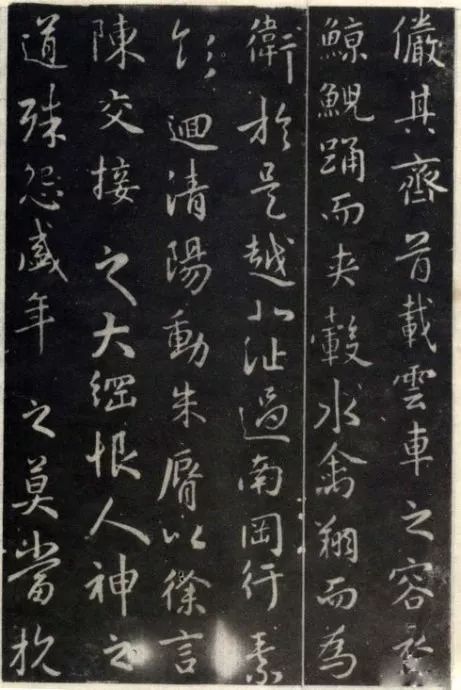 儼其齊首載雲車之容裔
鯨鯢踊而夾轂水禽翔而為
衛於是越北沚過南岡行素
領迴清陽動朱脣以徐言
陳交接之大綱恨人神之
道殊怨盛年之莫當抗